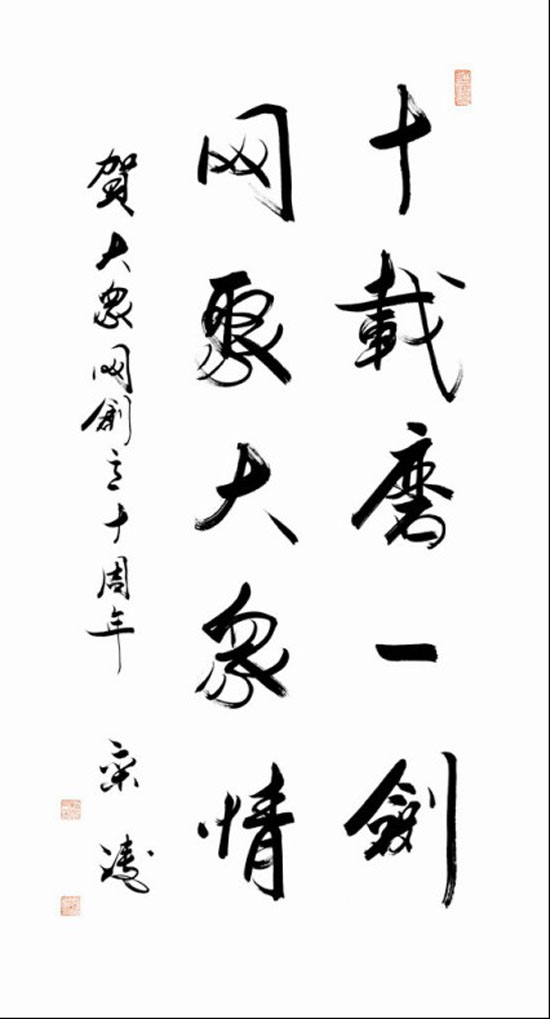 十載磨一劍
网聚大衆情
賀大衆网創立十周年